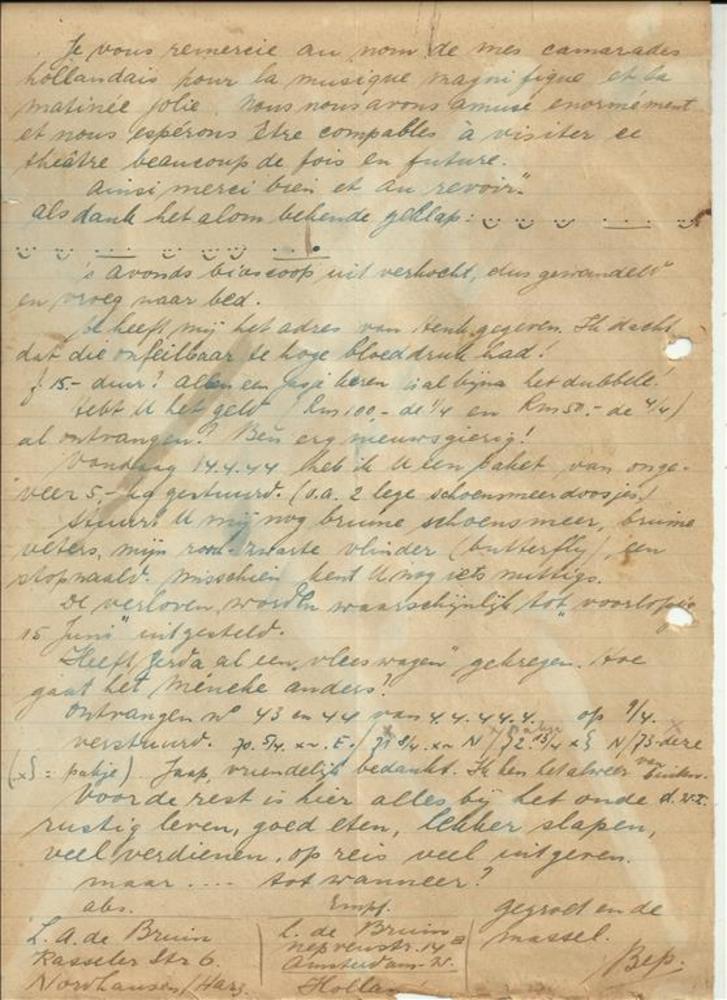 Je vous remercie au nom de mes camarades
hollandais pour la musique magnifique et la
matinée jolie. Nous nous avons amusé enormément
et nous espérons être compables à visiter ce
théâtre beaucoup de fois en future.
Ainsi merci bien et au revoir."
Als dank het alom bekende geklap:
's Avonds bioscoop uitverkocht, dus gewandeld
en vroeg naar bed.
U heeft mij het adres van Henk gegeven. Ik dacht
dat die onfeilbaar te hoge bloeddruk had!
f 15.- duur? Alleen een jasje keren is al bijna het dubbele!
Hebt U het geld (Rm 100,- de 1/4 en Rm 50.- de 4/4)
al ontvangen? Ben erg nieuwsgierig!
Vandaag 14.4.44 heb ik U een paket van onge-
veer 5,- kg gestuurd. (o.a. 2 lege schoensmeerdoosjes)
Stuurt U mij nog bruine schoensmeer, bruine
veters, mijn rood-zwarte vlinder (butterfly), een
stopnaald. Misschien kent U nog iets nuttigs.
De verloven worden waarschijnlijk tot "voorlopig
15 Juni" uitgesteld.
Heeft Gerda al een "vleeswagen" gekregen. Hoe
gaat het Meneke anders?
Ontvangen no 43 en 44 van 4.4.44. op 9/4.
verstuurd. 70. 5/4. N / 73 deze
= pakje). Jaap, vriendelijk bedankt. Ik ken het alweer van
Voor de rest is hier alles bij het oude d.w.z.
rustig leven, goed eten, lekker slapen,
veel verdienen, op reis veel uitgeven.
maar .... tot wanneer?
abs. Empf. gegroet en de
L. A. de Bruin L. de Bruin massel.
Kasseler Str 6. Nepveustr. 14 Bep.
Nordhausen/Harz. Amsterdam-W.
Holland